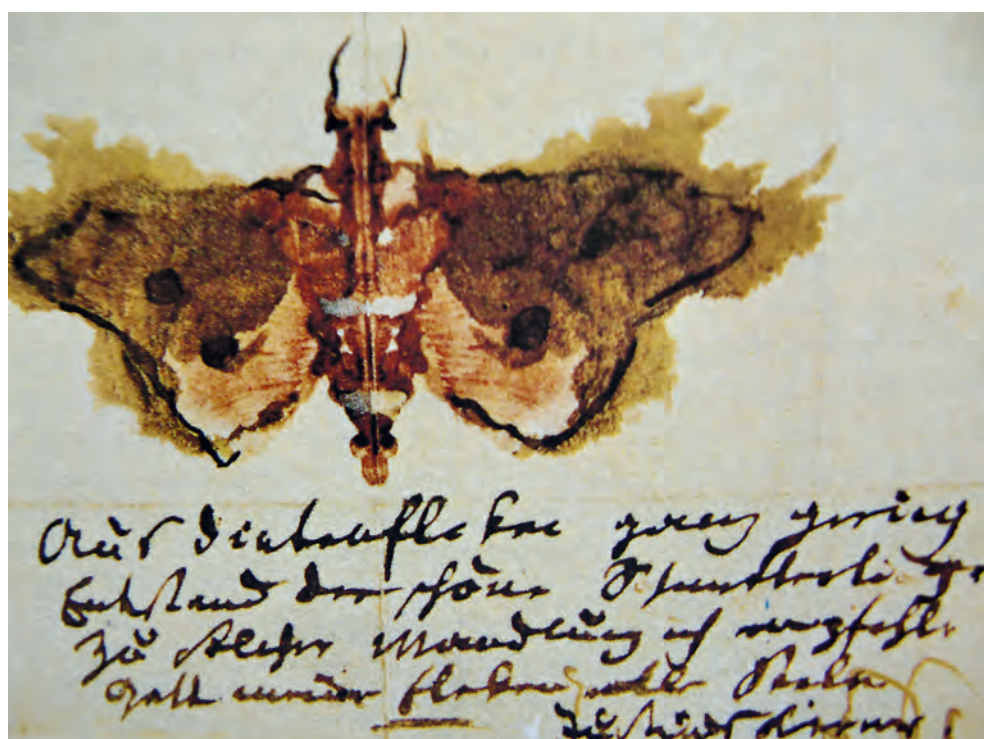 Aus Dintenfleken ganz gering
Entstand der schöne Schmetterling
Zu solcher Wandlung ich empfehle
Gott meine flekenvolle Seele
Justinus Kerner